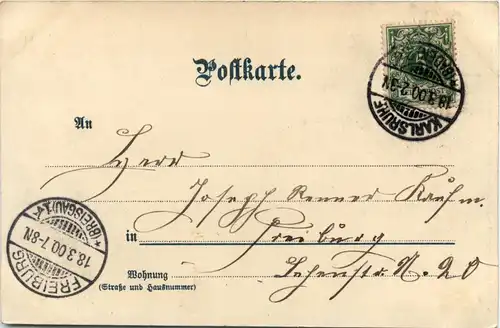 Postkarte.
KARLSRUHE
18.3.00.2-3N.
(BADEN)
An
Herr
Joseph Renner Kaufm.
in Freiburg
Wohnung
(Straße und Hausnummer)
Lehenstr. N. 20
FREIBURG
18.3.00.7-8N.
*(BREISGAU)1*